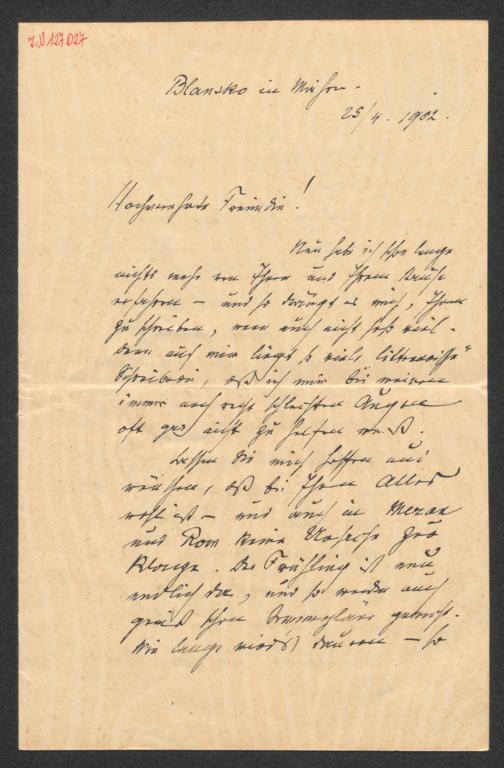 I.N. 127.027
Blansko in Mähren.
25/4. 1902.
Hochverehrte Freundin!
Nun hab ich schon lange
nichts mehr von Ihnen und Ihrem Hause
erfahren – und so drängt es mich, Ihnen
zu schreiben, wenn auch nicht sehr viel –
denn auf mir liegt so viele „litterarische"
Schreiberei, daß ich mir bei meinen
immer noch recht schlechten Augen
oft gar nicht zu helfen weiß.
Lassen Sie mich hoffen und
wünschen, daß bei Ihnen Alles
wohl ist – und auch in Meran
und Rom keine Ursache zur
Klage. Der Frühling ist nun
endlich da, und so werden auch
gewiß schon Sommerpläne gemacht.
Wie lange wird's dauern – so